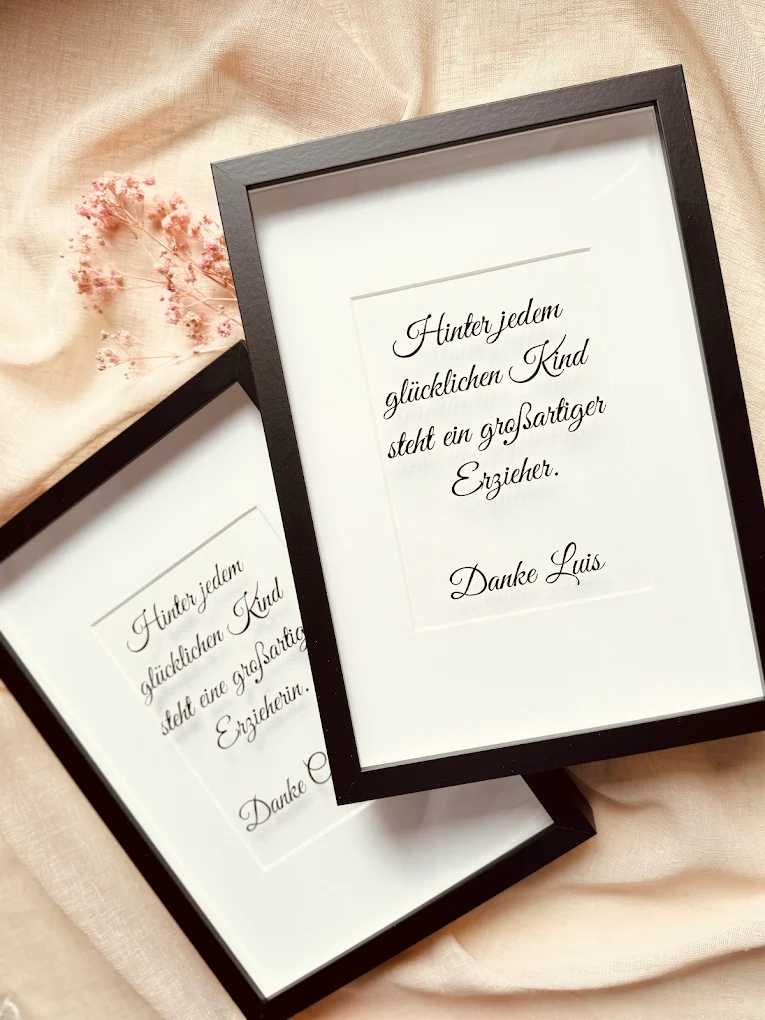 Hinter jedem
glücklichen Kind
steht ein großartiger
Erzieher.
Danke Luis
Hinter jedem
glücklichen Kind
steht eine
Erzieherin.
Danke